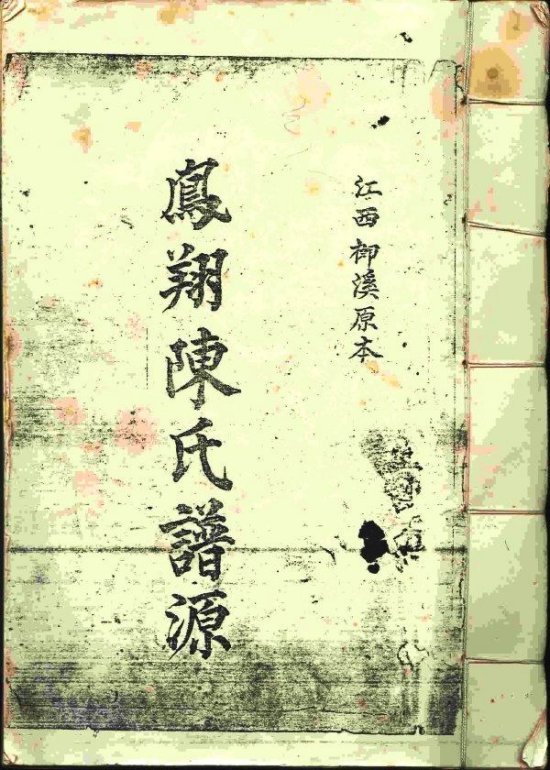 江西柳溪原本
鳳翔陳氏譜源